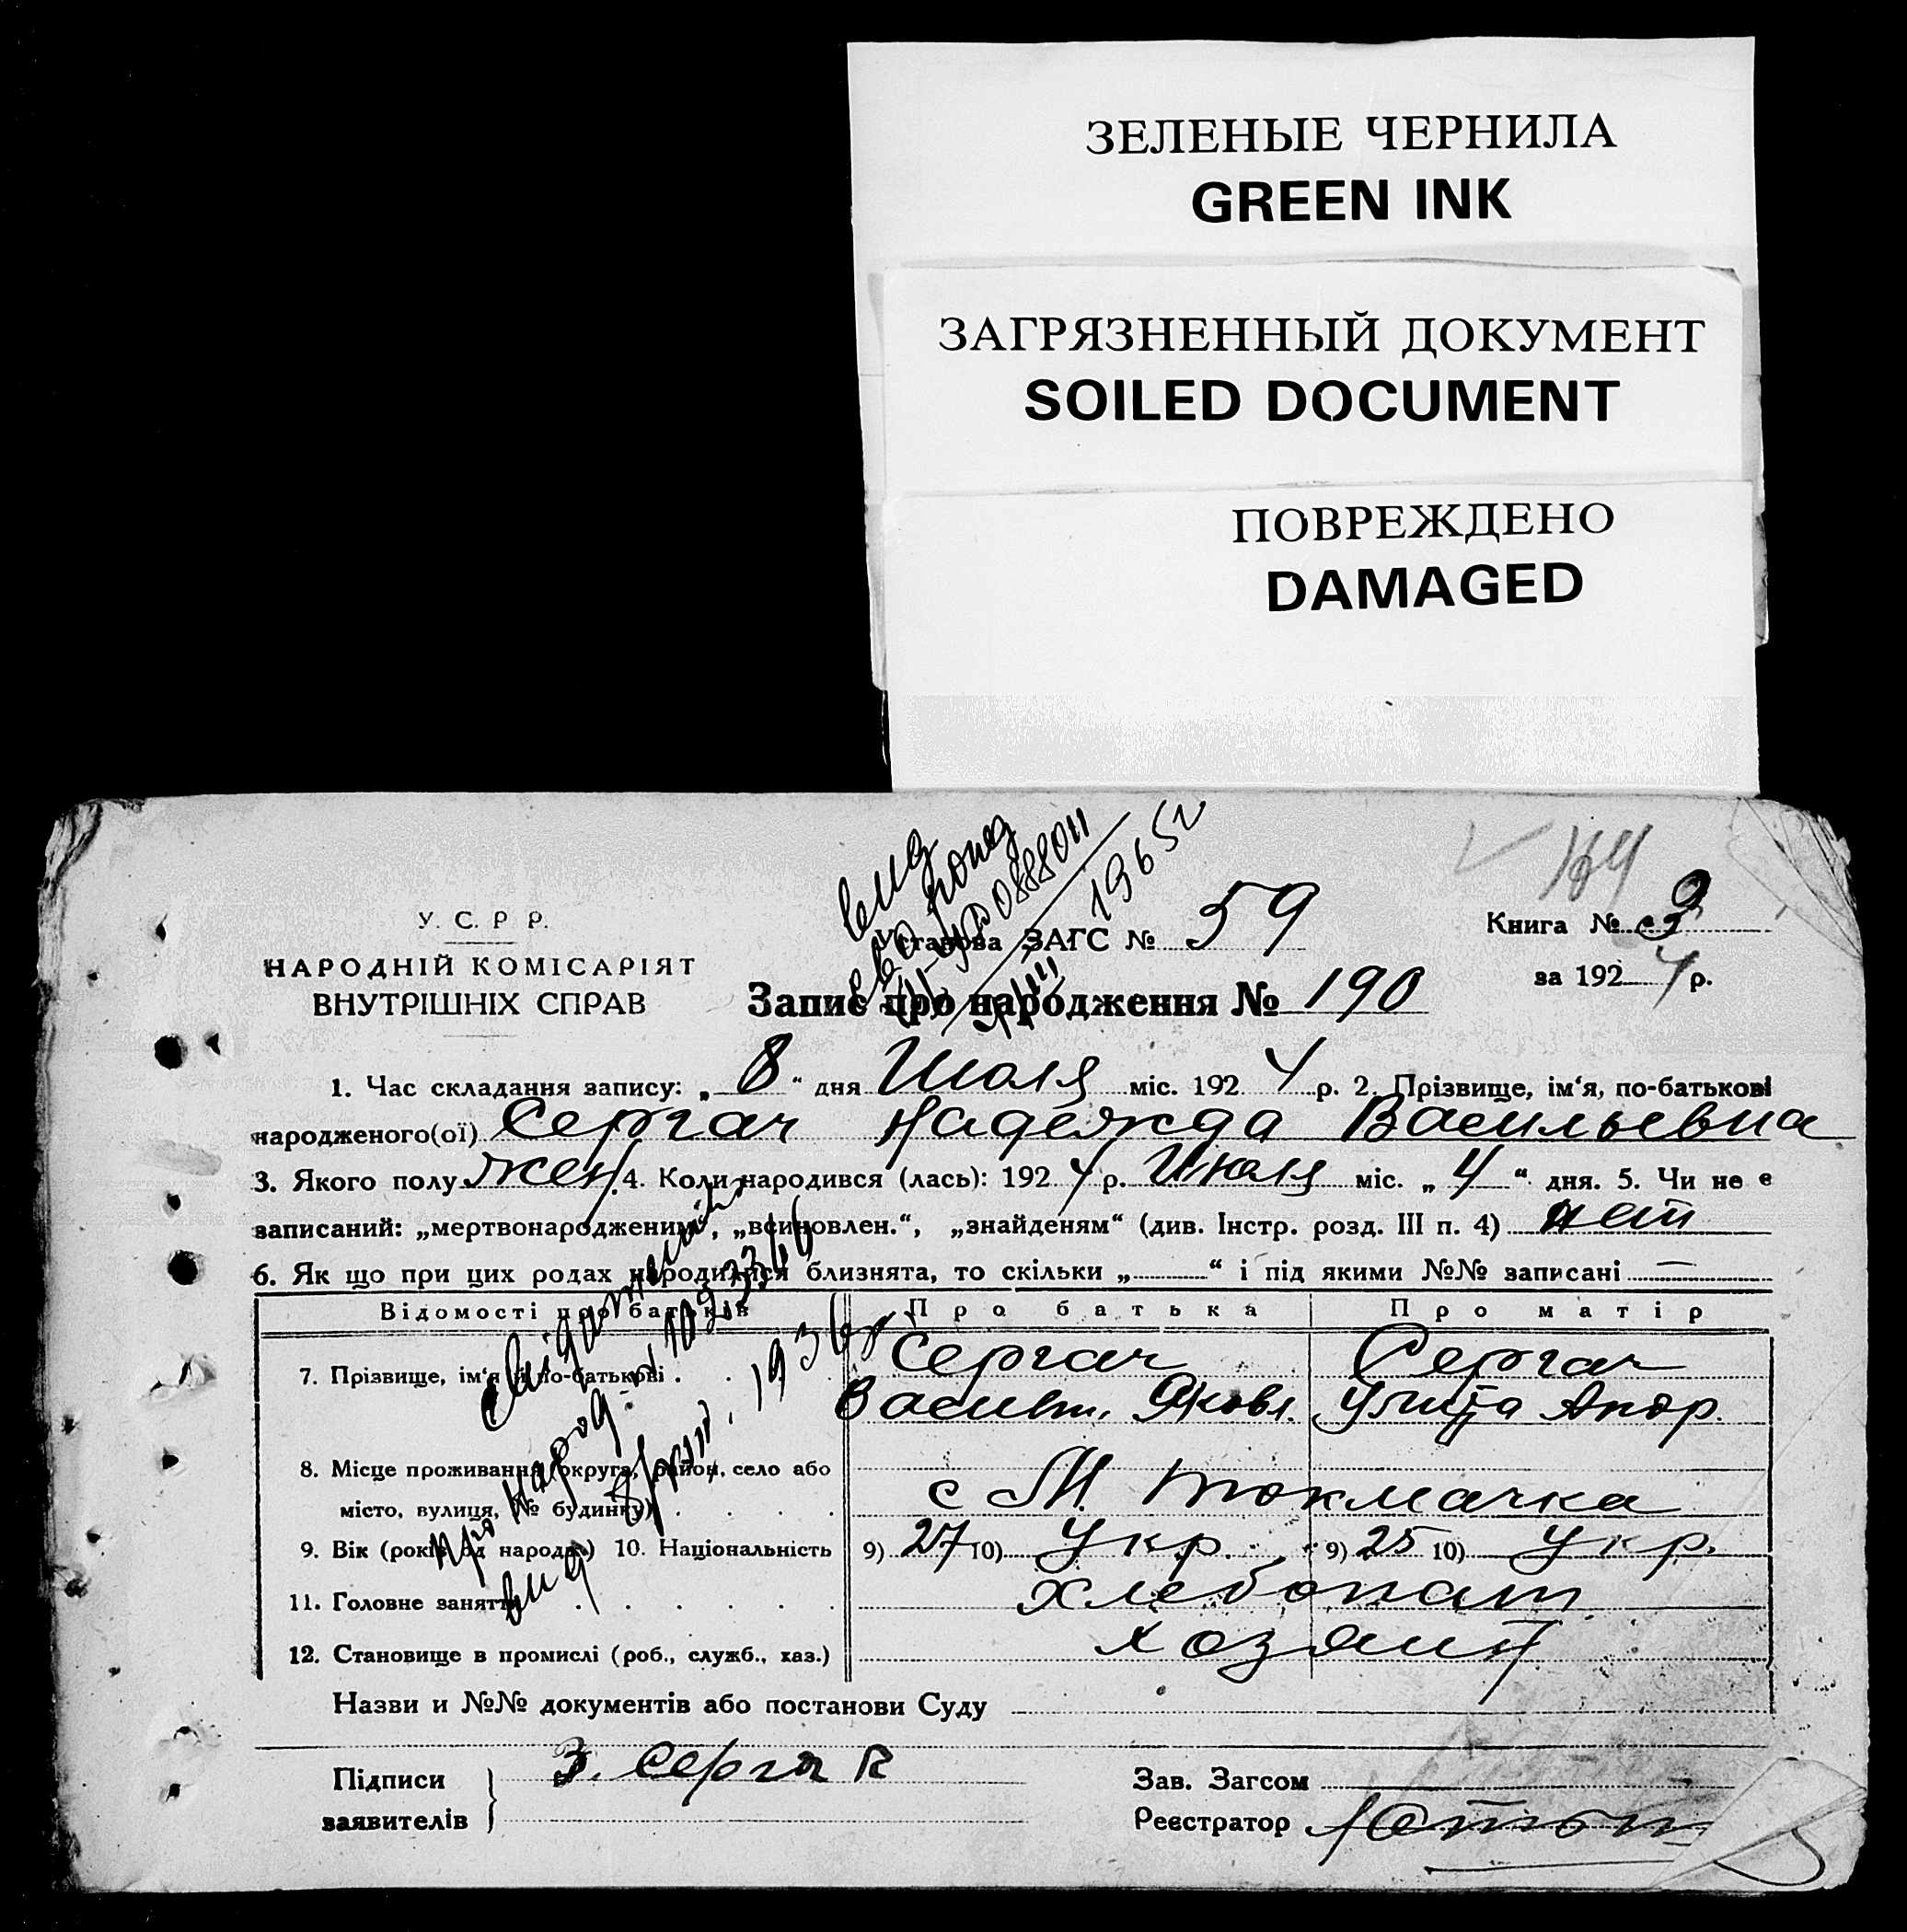 ЗЕЛЕНЫЕ ЧЕРНИЛА
GREEN INK
ЗАГРЯЗНЕННЫЙ ДОКУМЕНТ
SOILED DOCUMENT
ПОВРЕЖДЕНО
DAMAGED
У. С. Р Р.
НАРОДНІЙ КОМІСАРІЯТ
ВНУТРІШНІХ СПРАВ
вид
1965г
станова ЗАГС № 59
Книга № 3
за 1924 р.
Запис про народження № 190
1. Час складання запису: „ 8 “ дня Июля міс. 1924 р. 2. Прізвище, ім‘я, по-батькові
народженого(ої) Сергач Надежда Васильевна
3. Якого полу жен. 4. Коли народився (лась): 1924 р. Июля міс. „ 4 “ дня. 5. Чи не є
записаний: „мертвонародженим“, „всиновлен.“, „знайденям“ (див. Інстр. розд. III п. 4) нет
6. Як що при цих родах народилися близнята, то скільки „ “ і під якими №№ записані —
Відомості про батьків Про батька Про матір
7. Прізвище, ім‘я й по-батькові Сергач Сергач
Васил. Яковл. Улита Андр.
8. Місце проживання (округа, район, село або
місто, вулиця, № будинку) с М. Токмачка
9. Вік (років од народж.) 10. Національність 9) 27 10) Укр. 9) 25 10) Укр.
11. Головне заняття хлебопаш.
12. Становище в промислі (роб., служб., хаз.) хозяин
вид
про народ.
1936р.
Назви и №№ документів або постанови Суду
Підписи
заявителів
З. Сергач
Зав. Загсом
Реєстратор